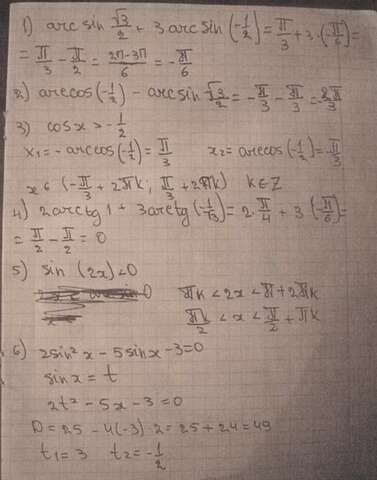 1) arcsin √3/2 + 3 arcsin (-1/2) = π/3 + 3·(-π/6) =
= π/3 - π/2 = (2π-3π)/6 = -π/6
2) arccos(-1/2) - arcsin √3/2 = -π/3 - π/3 = -2π/3
3) cosx > -1/2
x₁ = - arccos(-1/2) = π/3 x₂ = arccos(-1/2) = -π/3
x ∈ (-π/3 + 2πk; π/3 + 2πk) k∈Z
4) 2arctg 1 + 3arctg(-1/√3) = 2·π/4 + 3(-π/6) =
= π/2 - π/2 = 0
5) sin (2x) < 0
πk < 2x < π + 2πk
πk/2 < x < π/2 + πk
6) 2sin²x - 5sinx - 3 = 0
sinx = t
2t² - 5x - 3 = 0
D = 25 - 4(-3)·2 = 25 + 24 = 49
t₁ = 3 t₂ = -1/2